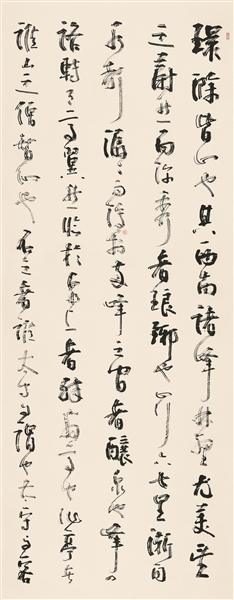 環滁皆山也其西南諸峰林壑尤美望
之蔚然而深秀者琅琊也山行六七里漸聞
水聲潺〻而瀉於兩峰之間者釀泉也峰回
路轉有亭翼然臨於泉上者醉翁亭也作亭者
誰山之僧智仙也名之者誰太守自謂也太守与客